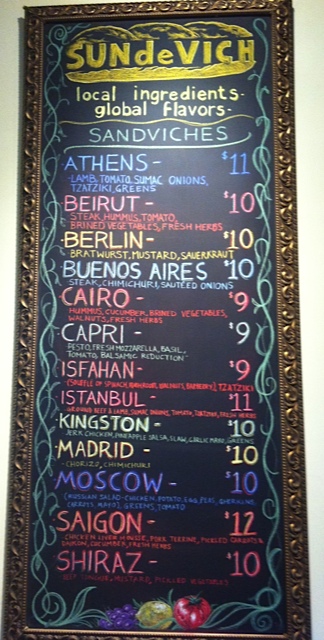 SUNdeVICH
local ingredients-
global flavors-
SANDVICHES
ATHENS- $11
-LAMB, TOMATO, SUMAC ONIONS,
TZATZIKI, GREENS
BEIRUT- $10
STEAK, HUMMUS, TOMATO,
BRINED VEGETABLES, FRESH HERBS
BERLIN- $10
BRATWURST, MUSTARD, SAUERKRAUT
BUENOS AIRES $10
STEAK, CHIMICHURI, SAUTÉED ONIONS
CAIRO- $9
HUMMUS, CUCUMBER, BRINED VEGETABLES,
WALNUTS, FRESH HERBS
CAPRI- $9
PESTO, FRESH MOZZARELLA, BASIL,
TOMATO, BALSAMIC REDUCTION
ISFAHAN- $9
(SOUFFLE OF SPINACH, WALNUTS, BARBERRY), TZATZIKI
ISTANBUL- $11
GROUND BEEF & LAMB, SUMAC ONIONS, TOMATO, TZATZIKI, FRESH HERBS
KINGSTON- $10
JERK CHICKEN, PINEAPPLE SALSA, SLAW, GARLIC MAYO, GREENS
MADRID- $10
-CHORIZO, CHIMICHURI
MOSCOW- $10
(RUSSIAN SALAD-CHICKEN, POTATO, EGG, PEAS, GHERKINS,
MAYO), GREENS, TOMATO
SAIGON- $12
CHICKEN LIVER MOUSSE, PORK TERRINE, PICKLED CARROTS &
DAIKON, CUCUMBER, FRESH HERBS
SHIRAZ- $10
BEEF TONGUE, MUSTARD, PICKLED VEGETABLES